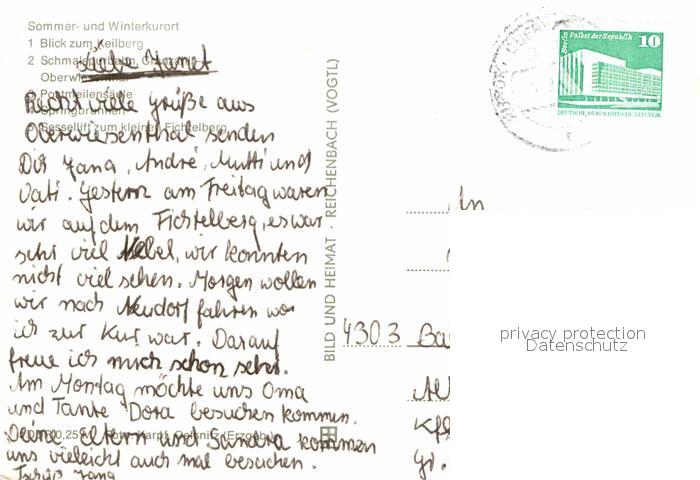 Sommer- und Winterkurort
1 Blick zum Keilberg
2 Schmalspurbahn,
Liebe Janet
Postmeilensäule
Recht viele Grüße aus
Springbrunnen
Sessellift zum kleinen Fichtelberg
Oberwiesenthal senden
Dir Jana, André, Mutti und
Vati. Gestern am Freitag waren
wir auf dem Fichtelberg, es war
sehr viel Nebel, wir konnten
nicht viel sehen. Morgen wollen
wir nach Neudorf fahren wo
ich zur Kur war. Darauf
freue ich mich schon sehr.
Am Montag möchte uns Oma
und Tante Dora besuchen kommen.
Deine Eltern und Sandra kommen
Foto: Karpf, Oelsnitz (Erzgeb.)
uns vieleicht auch mal besuchen.
Tschüß Jana
BILD UND HEIMAT · REICHENBACH (VOGTL)
Berlin Palast der Republik 10
DEUTSCHE DEMOKRATISCHE REPUBLIK
An
4303 Ba
privacy protection
Datenschutz